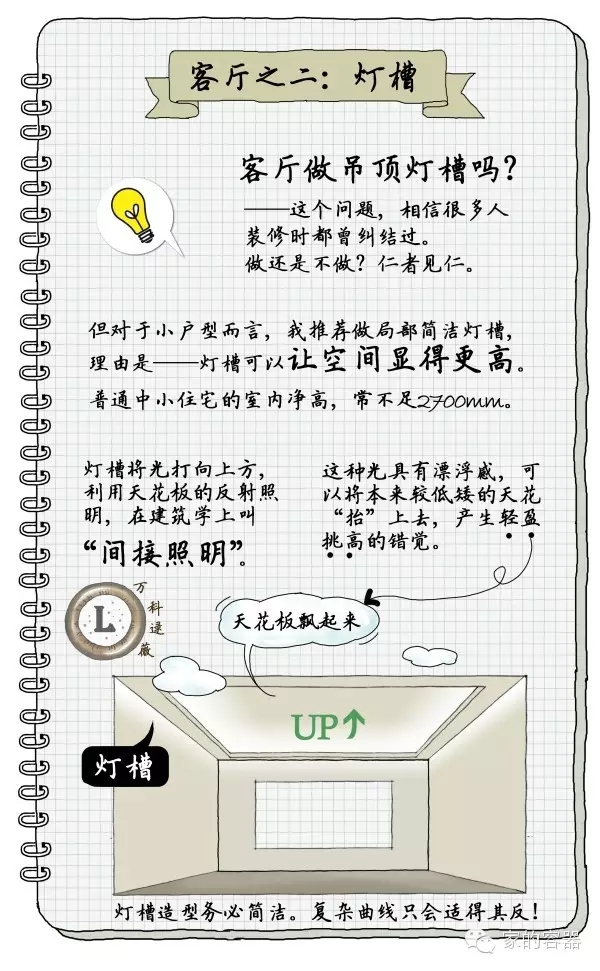 客厅之二：灯槽
客厅做吊顶灯槽吗？
——这个问题，相信很多人
装修时都曾纠结过。
做还是不做？仁者见仁。
但对于小户型而言，我推荐做局部简洁灯槽，
理由是——灯槽可以让空间显得更高。
普通中小住宅的室内净高，常不足2700mm。
灯槽将光打向上方，
利用天花板的反射照
明，在建筑学上叫
“间接照明”。
这种光具有漂浮感，可
以将本来较低矮的天花
“抬”上去，产生轻盈
挑高的错觉。
L
万科逯薇
天花板飘起来
UP↑
灯槽
灯槽造型务必简洁。复杂曲线只会适得其反！
家的容器